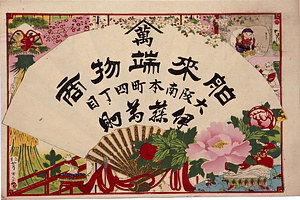 萬
舶來端物商
大阪南本町四丁目
伊藤萬助